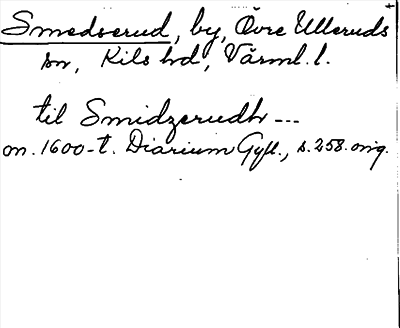 Smedserud, by, Övre Ulleruds
sn, Kils hd, Värml. l.
til Smidzerudh ---
om. 1600-t. Diarium Gyll., s. 258. orig.